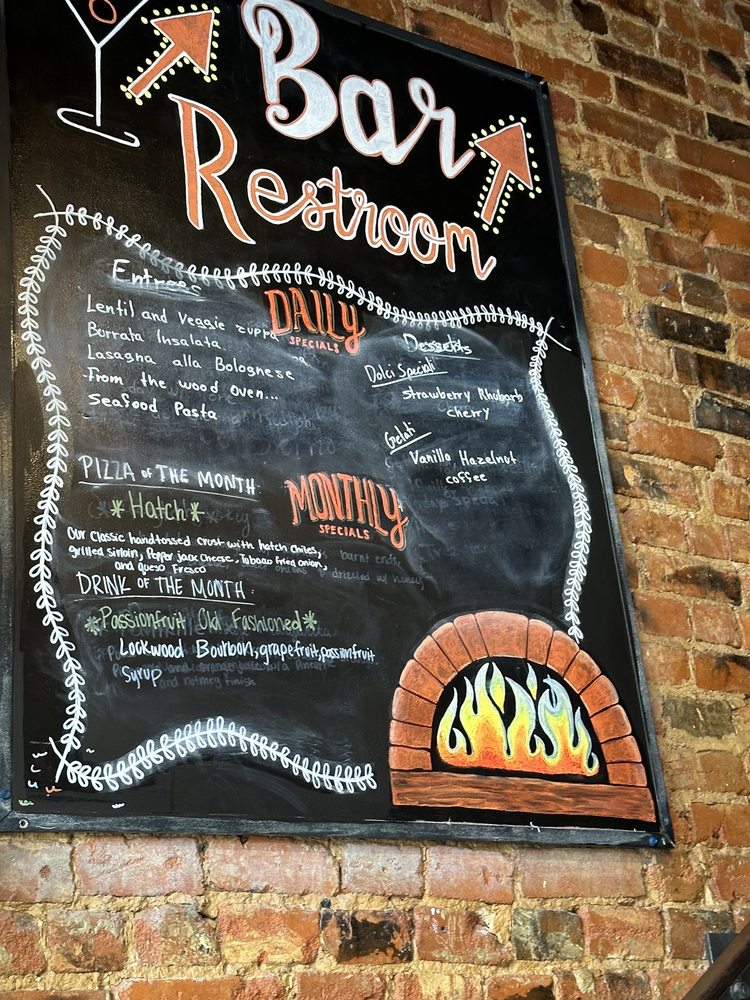 Bar
Restroom
DAILY
SPECIALS
Entrees
Lentil and Veggie zuppa
Burrata Insalata
Lasagna alla Bolognese
From the wood oven...
Seafood Pasta
Desserts
Dolci Speciali
Strawberry Rhubarb
cherry
Gelati
Vanilla Hazelnut
coffee
MONTHLY
SPECIALS
PIZZA of THE MONTH:
*Hatch*
Our classic handtossed crust with hatch chiles,
grilled sirloin, Pepper jack cheese, Tobaco fried onion,
and Queso Fresco
DRINK OF THE MONTH:
*Passionfruit Old Fashioned*
Lockwood Bourbon, grapefruit, passionfruit
Syrup
burnt ends,
drizzled w/ honey
and nutmeg finish